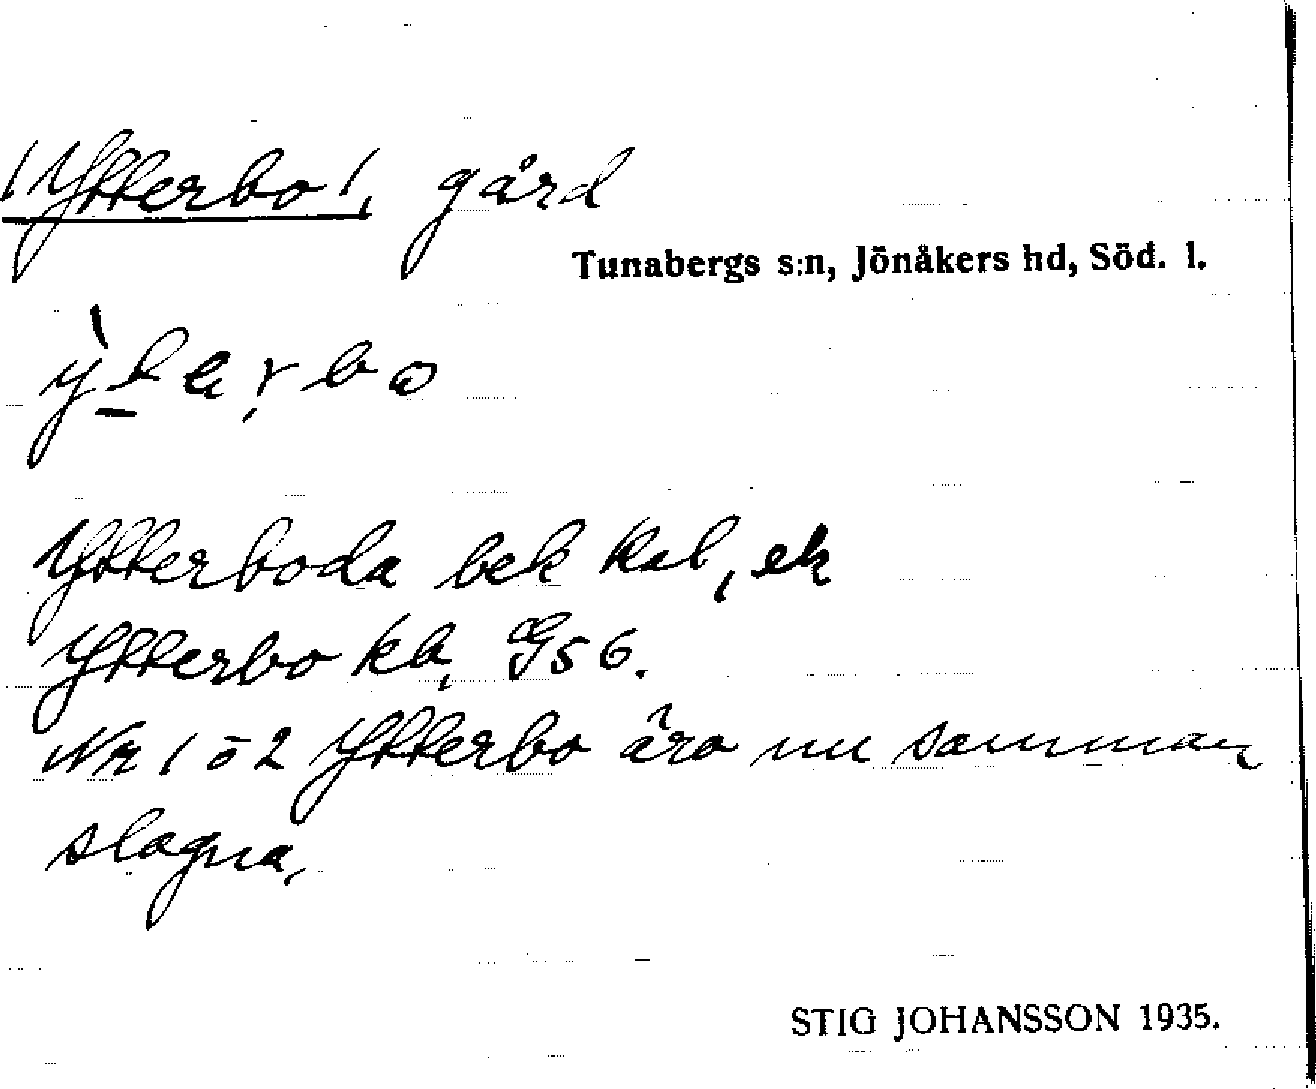 /Ytterbo/, gård
Tunabergs s:n, Jönåkers hd, Söd. l.
Ytterboda bek kal, ek
Ytterbo kb, G56.
Nr 1 o 2 Ytterbo äro nu samman
slagna.
STIG JOHANSSON 1935.